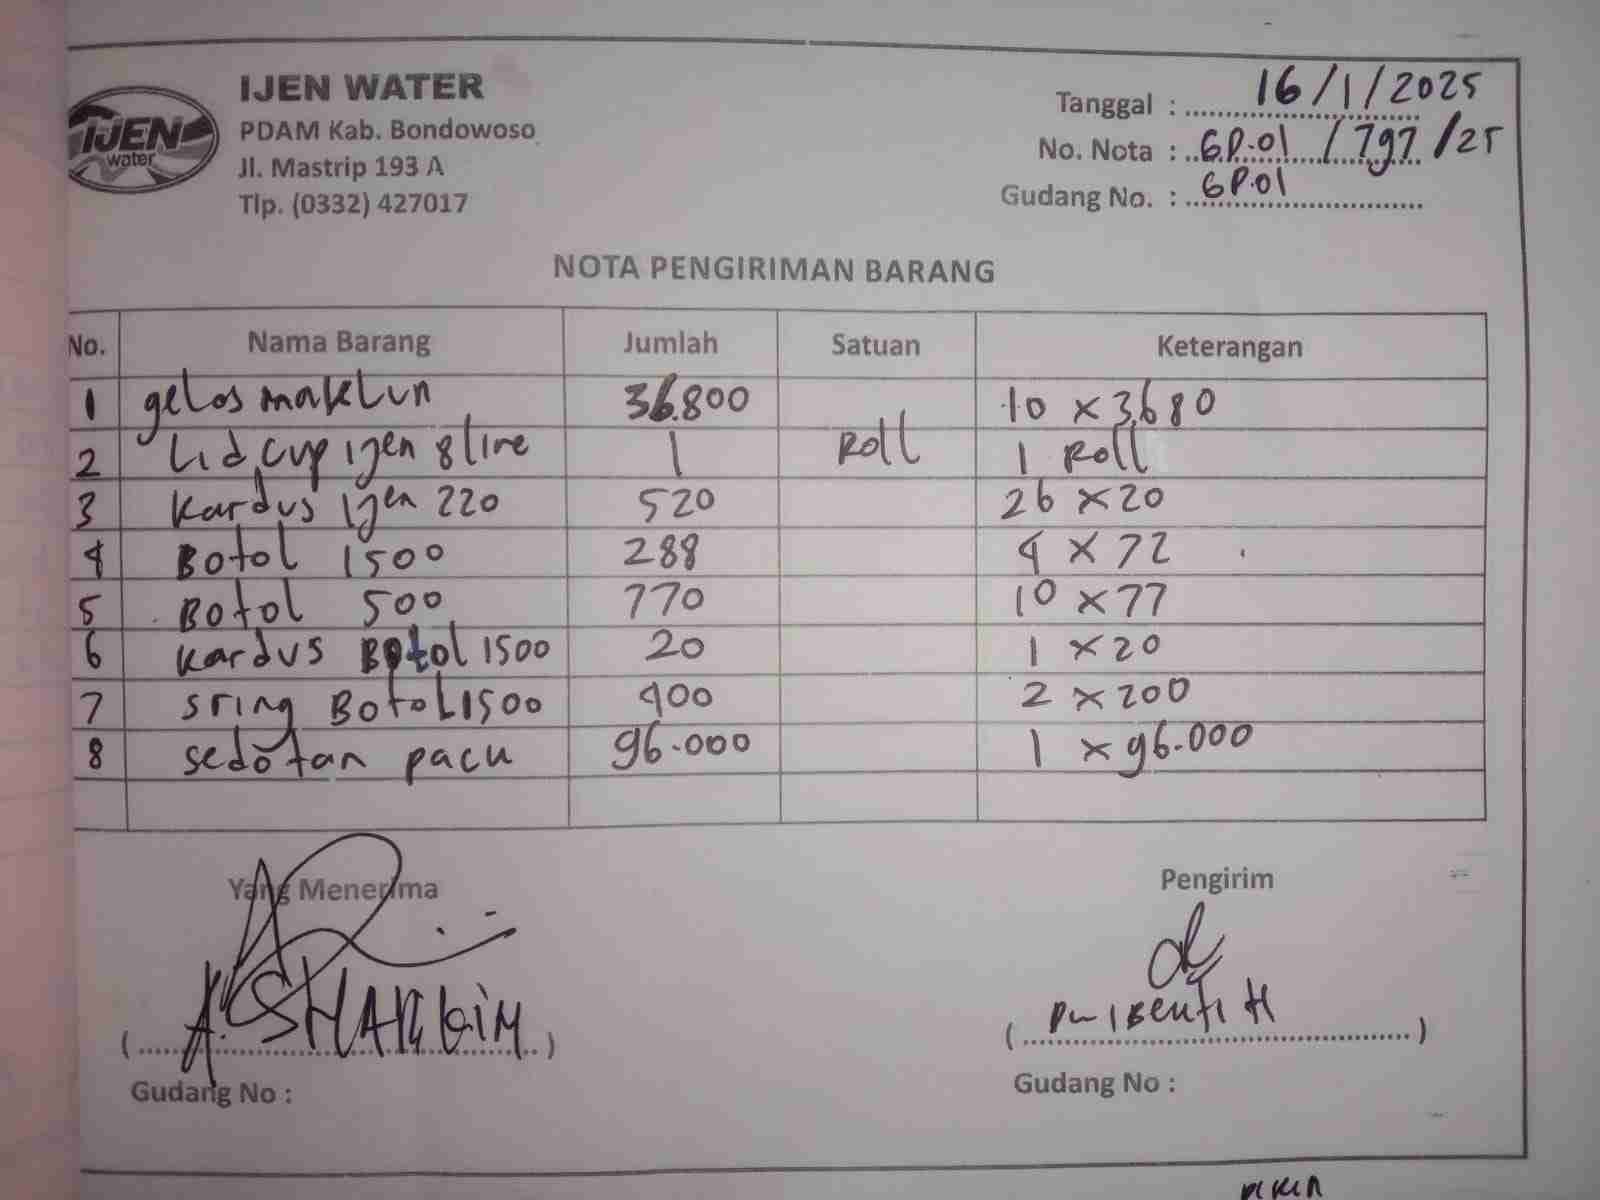 IJEN WATER
PDAM Kab. Bondowoso
Jl. Mastrip 193 A
Tlp. (0332) 427017
IJEN
water
Tanggal : 16/1/2025
No. Nota : GP.01 / 797 / 25
Gudang No. : GP.01
NOTA PENGIRIMAN BARANG
No. Nama Barang Jumlah Satuan Keterangan
1 gelas maklun 36.800 10 x 3.680
2 Lid cup ijen 8 line 1 Roll 1 Roll
3 Kardus Ijen 220 520 26 x 20
4 Botol 1500 288 4 x 72
5 Botol 500 770 10 x 77
6 Kardus Botol 1500 20 1 x 20
7 sring Botol 1500 400 2 x 200
8 sedotan pacu 96.000 1 x 96.000
Yang Menerima Pengirim
Gudang No : Gudang No :